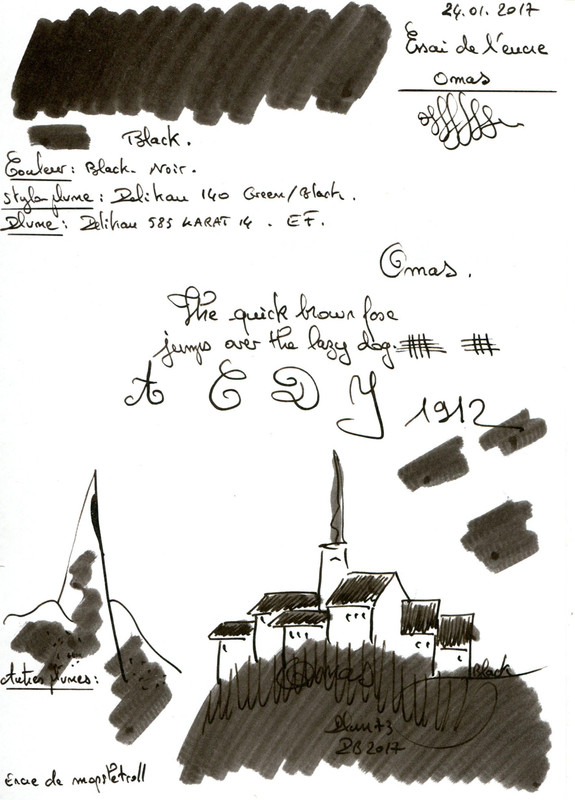 24.01.2017
Essai de l'encre
Omas
Black.
Couleur: Black - Noir.
Stylo plume: Pelikan 140 Green/Black.
Plume: Pelikan 585 KARAT 14. EF.
Omas.
The quick brown foxe
jumps over the lazy dog.
A C D Y 1912
Autres plumes:
Omas
Black
2017
Encre de